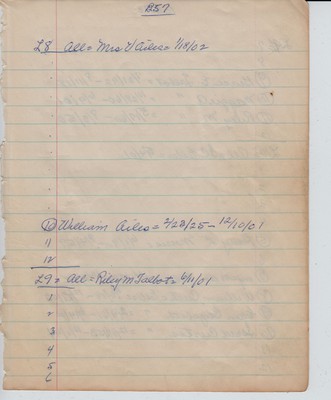 257
L8 All = Mrs V Ailes = 1/18/02
10 William Ailes = 2/28/25 - 12/10/01
11
12
L9 = All = Riley M Talbot = 6/11/01
1
2
3
4
5
6